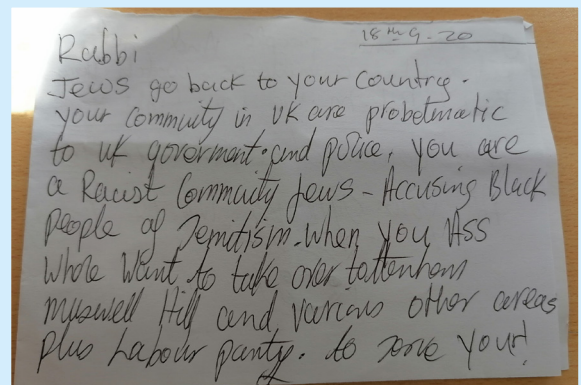 18th 9-20
Rabbi
Jews go back to your country.
your commuity in UK are probelmatic
to uk goverment. and police, you are
a Racist Commuity Jews - Accusing Black
People of Semitism. When you Ass
whole want to take over tottenham
muswell Hill and various other areas
plus Labour party. to your